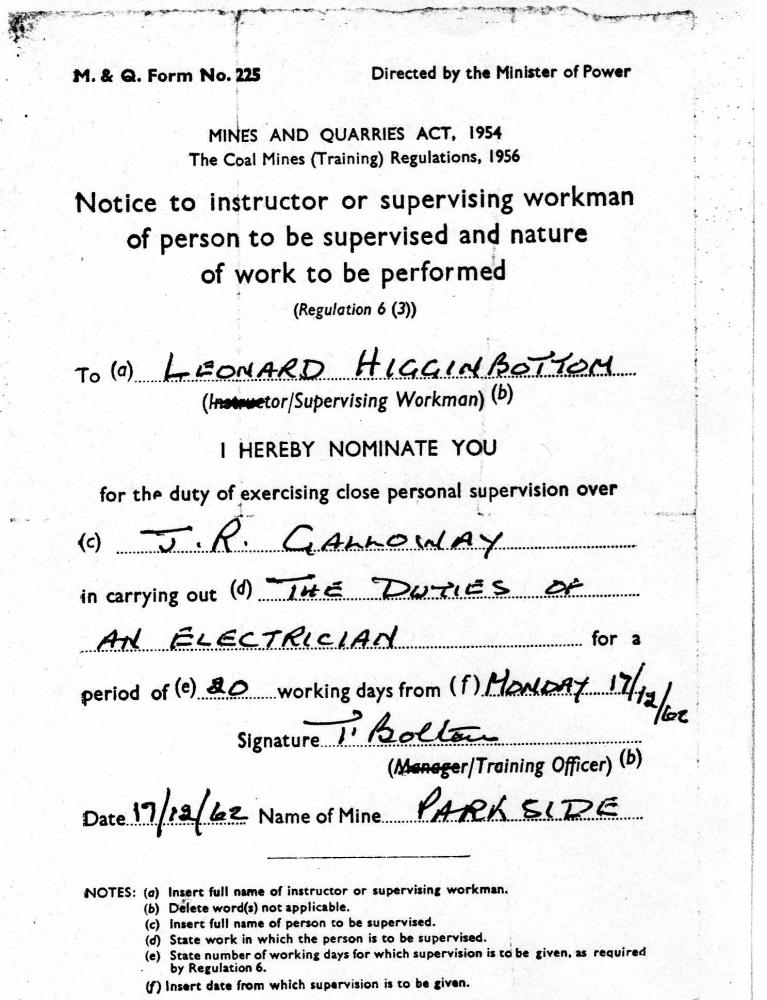 M. & Q. Form No. 225 Directed by the Minister of Power
MINES AND QUARRIES ACT, 1954
The Coal Mines (Training) Regulations, 1956
Notice to instructor or supervising workman
of person to be supervised and nature
of work to be performed
(Regulation 6 (3))
To (a) LEONARD HIGGINBOTTOM
(Instructor/Supervising Workman) (b)
I HEREBY NOMINATE YOU
for the duty of exercising close personal supervision over
(c) J. R. GALLOWAY
in carrying out (d) THE DUTIES OF
AN ELECTRICIAN for a
period of (e) 20 working days from (f) MONDAY 17/12/62
Signature T. Bolton
(Manager/Training Officer) (b)
Date 17/12/62 Name of Mine PARKSIDE
NOTES: (a) Insert full name of instructor or supervising workman.
(b) Delete word(s) not applicable.
(c) Insert full name of person to be supervised.
(d) State work in which the person is to be supervised.
(e) State number of working days for which supervision is to be given, as required
by Regulation 6.
(f) Insert date from which supervision is to be given.